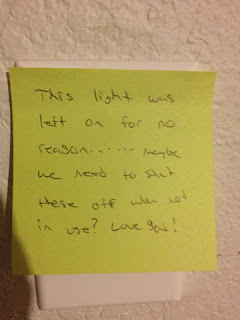 This light was
left on for no
reason....... maybe
we need to shut
these off when not
in use? Love you!